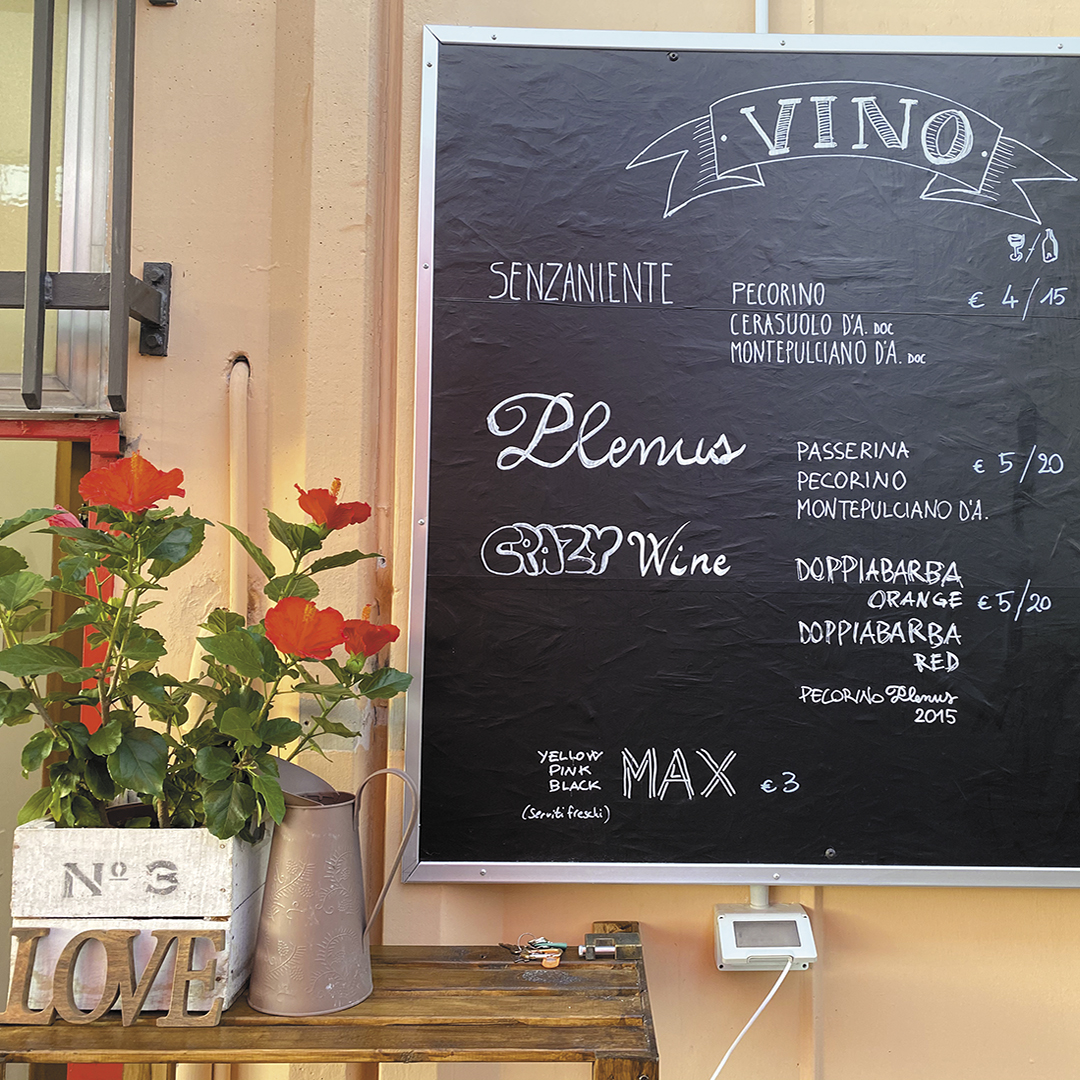 VINO
SENZANIENTE
PECORINO € 4/15
CERASUOLO D'A. DOC
MONTEPULCIANO D'A. DOC
Plenus
PASSERINA
PECORINO € 5/20
MONTEPULCIANO D'A.
CRAZY Wine
DOPPIABARBA
ORANGE € 5/20
DOPPIABARBA
RED
PECORINO Plenus
2015
YELLOW
PINK
BLACK
MAX € 3
(serviti freschi)
Nº 3
LOVE